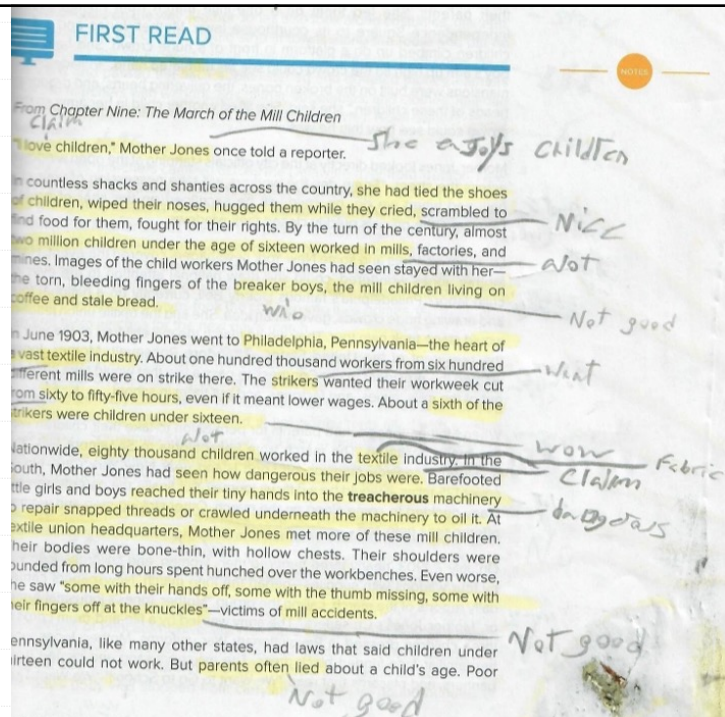 FIRST READ
NOTES
From Chapter Nine: The March of the Mill Children
Claim
I love children," Mother Jones once told a reporter.
She enjoys children
n countless shacks and shanties across the country, she had tied the shoes
of children, wiped their noses, hugged them while they cried, scrambled to
Nice
ind food for them, fought for their rights. By the turn of the century, almost
wo million children under the age of sixteen worked in mills, factories, and
alot
mines. Images of the child workers Mother Jones had seen stayed with her—
he torn, bleeding fingers of the breaker boys, the mill children living on
coffee and stale bread.
Not good
who
n June 1903, Mother Jones went to Philadelphia, Pennsylvania—the heart of
a vast textile industry. About one hundred thousand workers from six hundred
want
ifferent mills were on strike there. The strikers wanted their workweek cut
rom sixty to fifty-five hours, even if it meant lower wages. About a sixth of the
trikers were children under sixteen.
wow
alot
Nationwide, eighty thousand children worked in the textile industry. In the
Fabric
South, Mother Jones had seen how dangerous their jobs were. Barefooted
Claim
ttle girls and boys reached their tiny hands into the treacherous machinery
o repair snapped threads or crawled underneath the machinery to oil it. At
extile union headquarters, Mother Jones met more of these mill children.
heir bodies were bone-thin, with hollow chests. Their shoulders were
ounded from long hours spent hunched over the workbenches. Even worse,
he saw "some with their hands off, some with the thumb missing, some with
eir fingers off at the knuckles"—victims of mill accidents.
Not good
ennsylvania, like many other states, had laws that said children under
irteen could not work. But parents often lied about a child's age. Poor
Not good